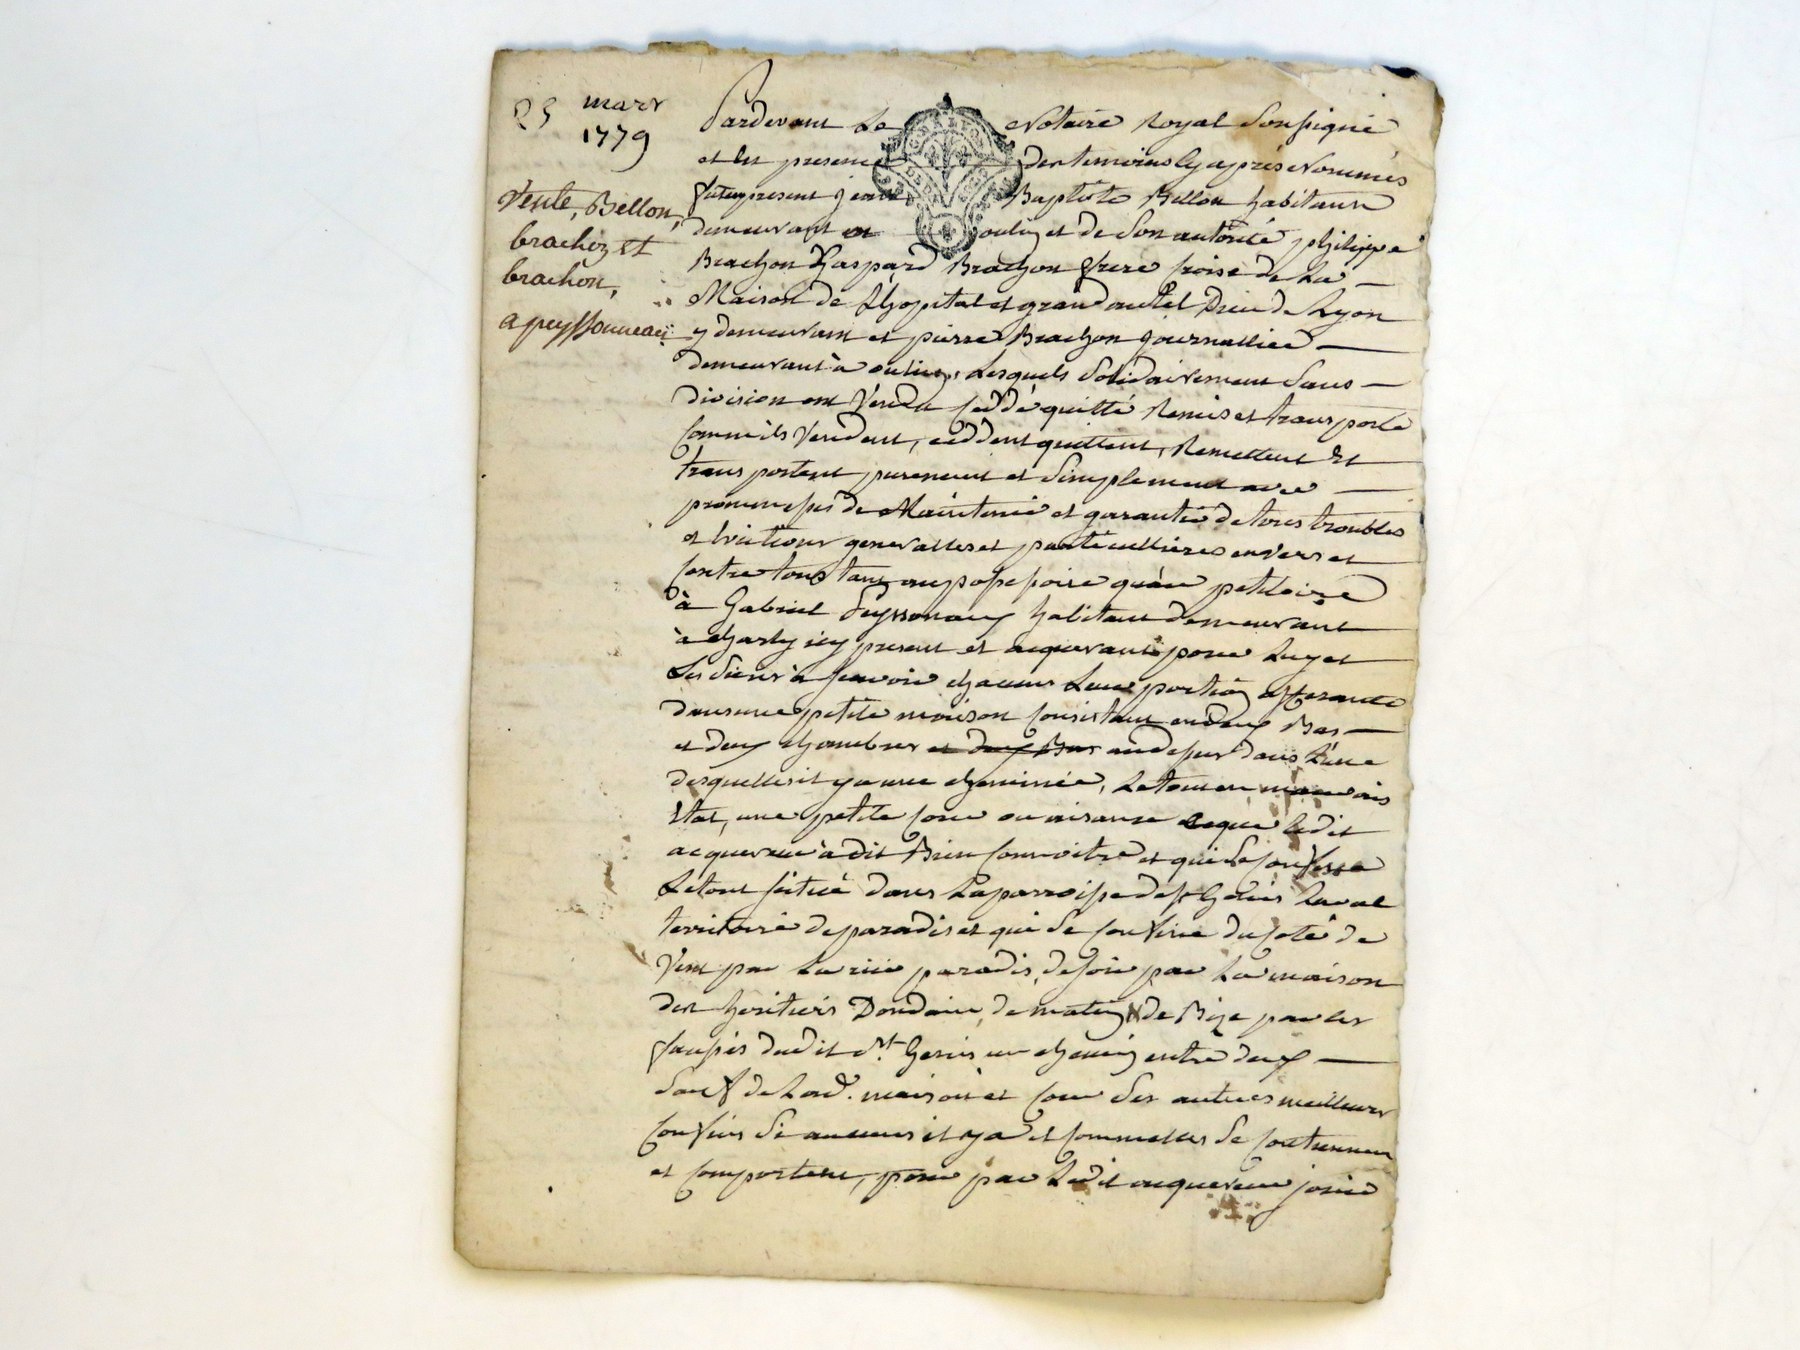 25 mars
1779
Vente, Bellon,
brachon et
brachon,
a peyssonneau
Pardevant Le Notaire Royal Soussigné
et les presence des temoins cy après Nommés
fut present Jean Baptiste Bellon habitant
demeurant en oulin, et de Son autorité philippe
Brachon Gaspard Brachon frere croisé de La
Maison de Lhopital et grand autel Dieu de Lyon
y demeurant et pierre Brachon Journallier
demeurant à oulin, Lesquels Solidairement Sans
division ont Vendu ceddé quitté Remis et transporté
Comme ils Vendent, ceddent quittent, Remettent Et
transportent purement et Simplement avec
promesses de Maintenir et garantir de tous troubles
et Evictions generalles et particullières envers et
Contre tous tant au possessoire qu'au petitoire
à Gabriel Peyssonaux habitant demeurant
à charly icy present et acquerant pour Luy et
Les Siens à scavoir chacuns Leur portion afferante
dans une petite maison Consistant en deux Bas
et deux chambres et deux Bas au dessus dans L'une
desquelles il y a une cheminée, Le tout en mauvais
Etat, une petite Cour ou aisance ce que ledit
acquereur à dit Bien Connoitre et qu'il Se Confesse
Le tout situé dans La parroisse de st Genis Laval
territoire de paradis et qui Se Confine du coté de
Vent par La rüe paradis, de soir par La maison
des heritiers Dondain, de matin de Bize par les
fossés dudit St Genis un chemin entre deux
Sauf de Lad. maison et Cour Ses autres meilleurs
Confins Si aucuns il y a et Comme elles Se Contiennent
et Comportent, pour par Ledit acquereur jouir